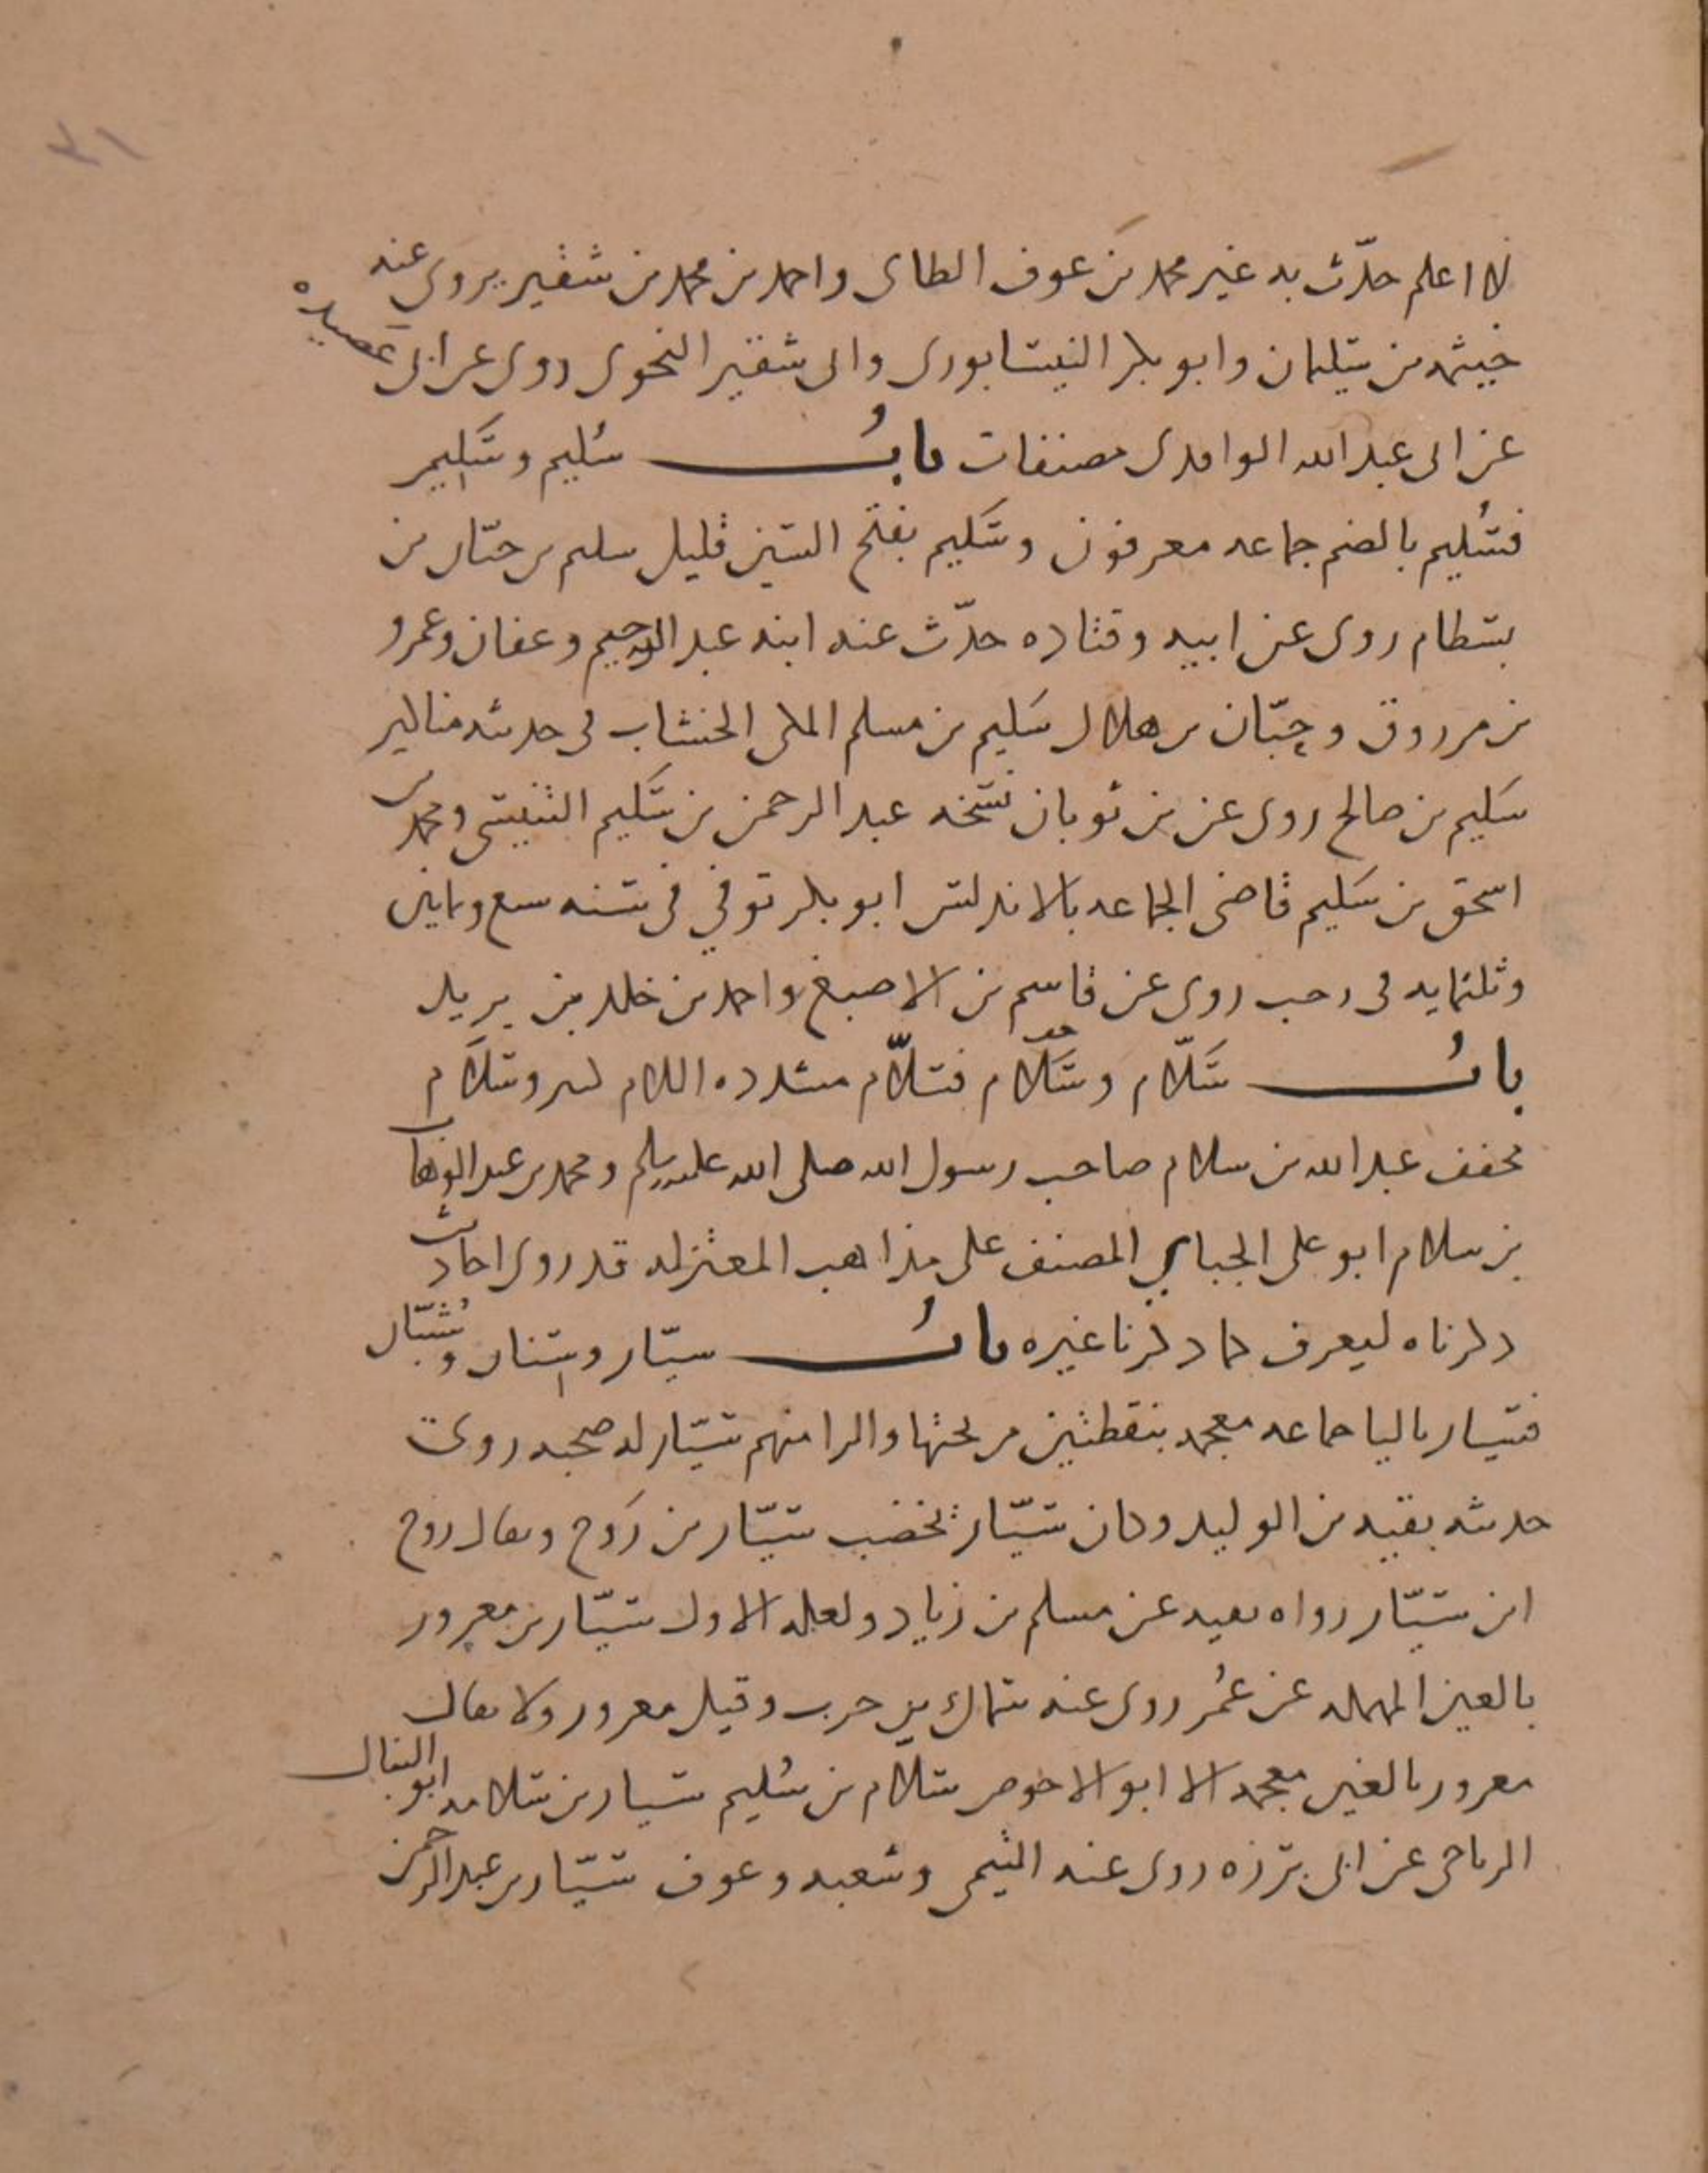 ٣١
لا اعلم حدّث به غير محمد بن عوف الطاى واحمد بن محمد بن شقير يروى عنه
خيثمه بن سليمان وابو بكر النيسابورى وابى شقير النحوى روى عن ابى عصيده
عن ابى عبد الله الواقدى مصنفات بابُ سُليم وسَلِيم
فسُليم بالضم جماعه معرفون وسَليم بفتح السين قليل سليم بن حيّان بن
بسطام روى عن ابيه وقتاده حدّث عنه ابنه عبد الرحيم وعفان وعمرو
بن مرزوق وحِبّان بن هلال سَليم بن مسلم المكى الخشاب فى حديثه مناكير
سَليم بن صالح روى عن بن ثوبان نسخه عبد الرحمن بن سَليم التنيسى ومحمد بن
اسحق بن سَليم قاضى الجماعه بالاندلس ابو بكر توفي فى سنه سبع وثمانين
وثلثمايه فى رجب روى عن قاسم بن الاصبغ واحمد بن خلد بن يزيد
بابُ سَلّام وسَلَام فسلاّم مشدده اللام كثير وسَلَام
مخفف عبد الله بن سلام صاحب رسول الله صلى الله عليه وسلم ومحمد بن عبد الوهاب
بن سلام ابو على الجباي المصنف على مذاهب المعتزله قد روى احاديث
ذكرناه ليعرف كما ذكرنا غيره بابُ سيّار وسِنان وشَبّال
فسيار باليا جماعه معجمه بنقطتين من تحتها والرا منهم سيّار له صحبه روى
حديثه بقيه بن الوليد وكان سيّار يخضب سيّار بن رَوح ويقال روح
ابن سيّار رواه بقيه عن مسلم بن زياد ولعله الاول سيّار بن معرور
بالعين المهمله عن عُمر روى عنه سماك بن حرب وقيل معرور ولا يقال
معرور بالغين معجمه الا ابو الاحوص سلّام بن سُليم سيار بن سلامه ابو المنهال
الرياحى عن ابى برزه روى عنه التيمى وشعبه وعوف سيّار بن عبد الرحمن